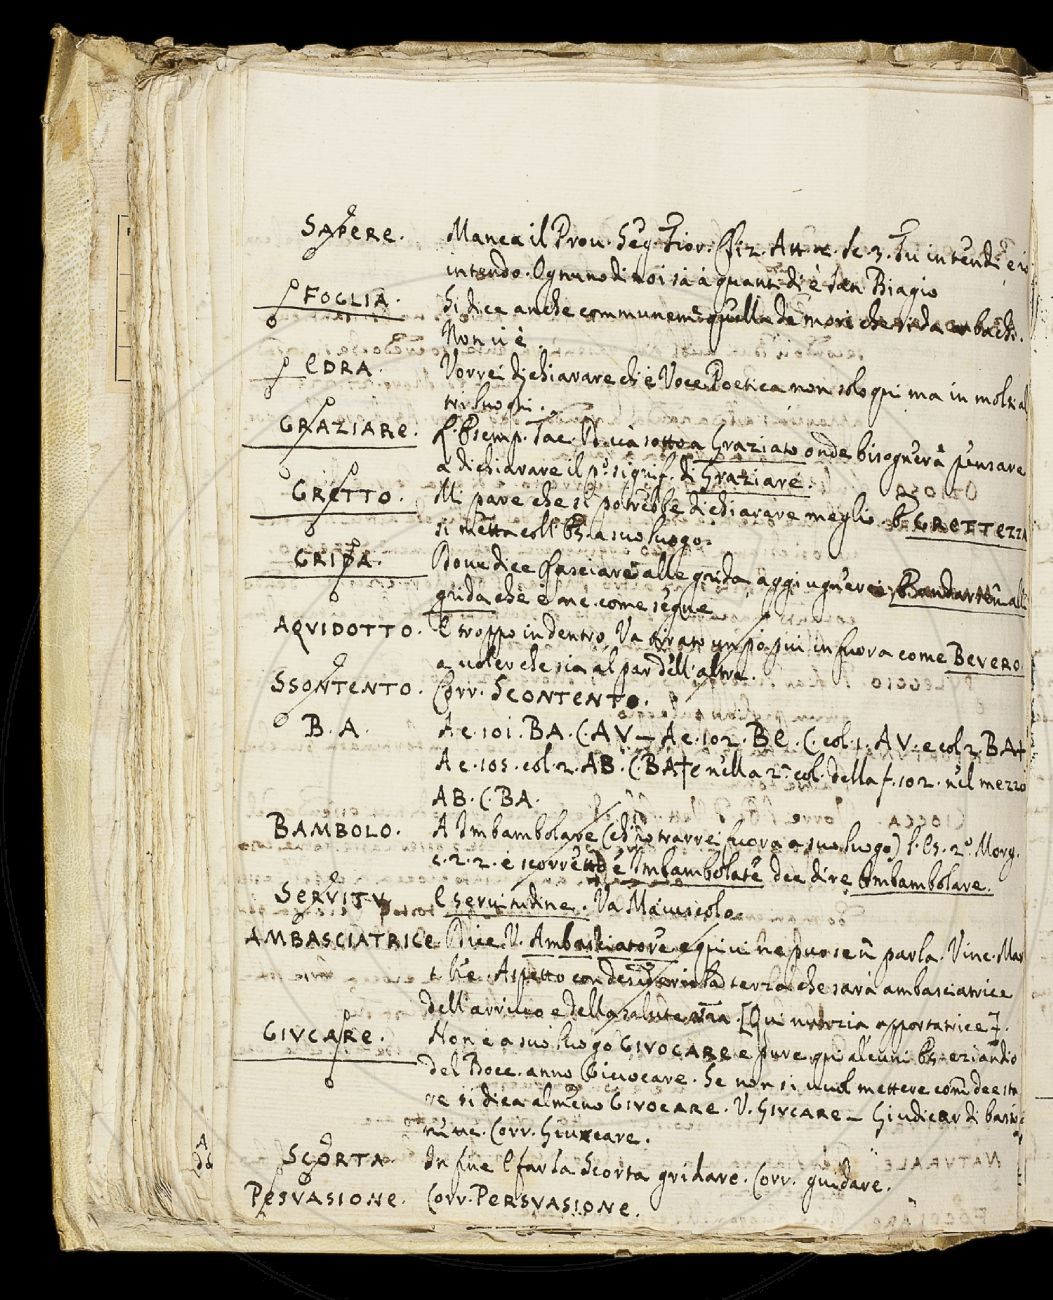 SAPERE. Manca il Prov. Seg. Fior. Att. Sc. 3. Tu intendi è io
intendo. Ognuno di noi sà à quanti dì è San Biagio
FOGLIA. Si dice anche communem. quella de mori che si da a bachi.
Non ui è
EDRA. Vorrei dichiarare ch'è Voce Poetica non solo qui ma in molti al
tri luoghi.
GRAZIARE. Esemp. Tac. sotto a Graziato onde bisognerà pensare
a dichiarare il signif. di Graziare.
GRETTO. Mi pare che si potrebbe dichiarare meglio. GRETTEZZA
si metta coll' Es. a suo luogo.
GRIDA. Doue dice Lasciare alle grida aggiugnerei Bandare alle
grida che è me. come segue
AQVIDOTTO. E troppo indentro, Va tirato un pò piu infuora come BEVERO
a uoler che sia al par dell'altre.
SSONTENTO. Corr. SCONTENTO.
B. A. A c. 101. BA. C. AV — A c. 102. BE. C. col. 1. AV. e col 2. BA
A c. 105. col. 2. AB. C. BA e nella 2a col. della f. 102. nel mezzo
AB. C. BA.
BAMBOLO. A Imbambolare (ch'io trarrei fuora a suo luogo) l'Es. 2o Morg.
c. 2. 2. è scorretto è Imbambolate dee dire Imbambolare.
SERVITV. E seruitudine. Va Maiuscolo
AMBASCIATRICE. Dice V. Ambasciatore e quiui ne puose ñ parla. Vinc. Mar
t. Aspetto con desiderio la terza che sarà ambasciatrice
dell'arriuo e della salute [Qui apportatrice].
GIVCARE. Non è a suo luogo GIVOCARE e pure qui alcuni Es. eziandio
del Bocc. anno Giuocare. Se non si uuol mettere com̃ dee sta
re si dica almeno GIVOCARE. V. GIVCARE — Giudicar di
Corr. Giucare.
SCORTA. In fine E far la Scorta gridare. Corr. guidare.
PESVASIONE. Corr. PERSVASIONE.